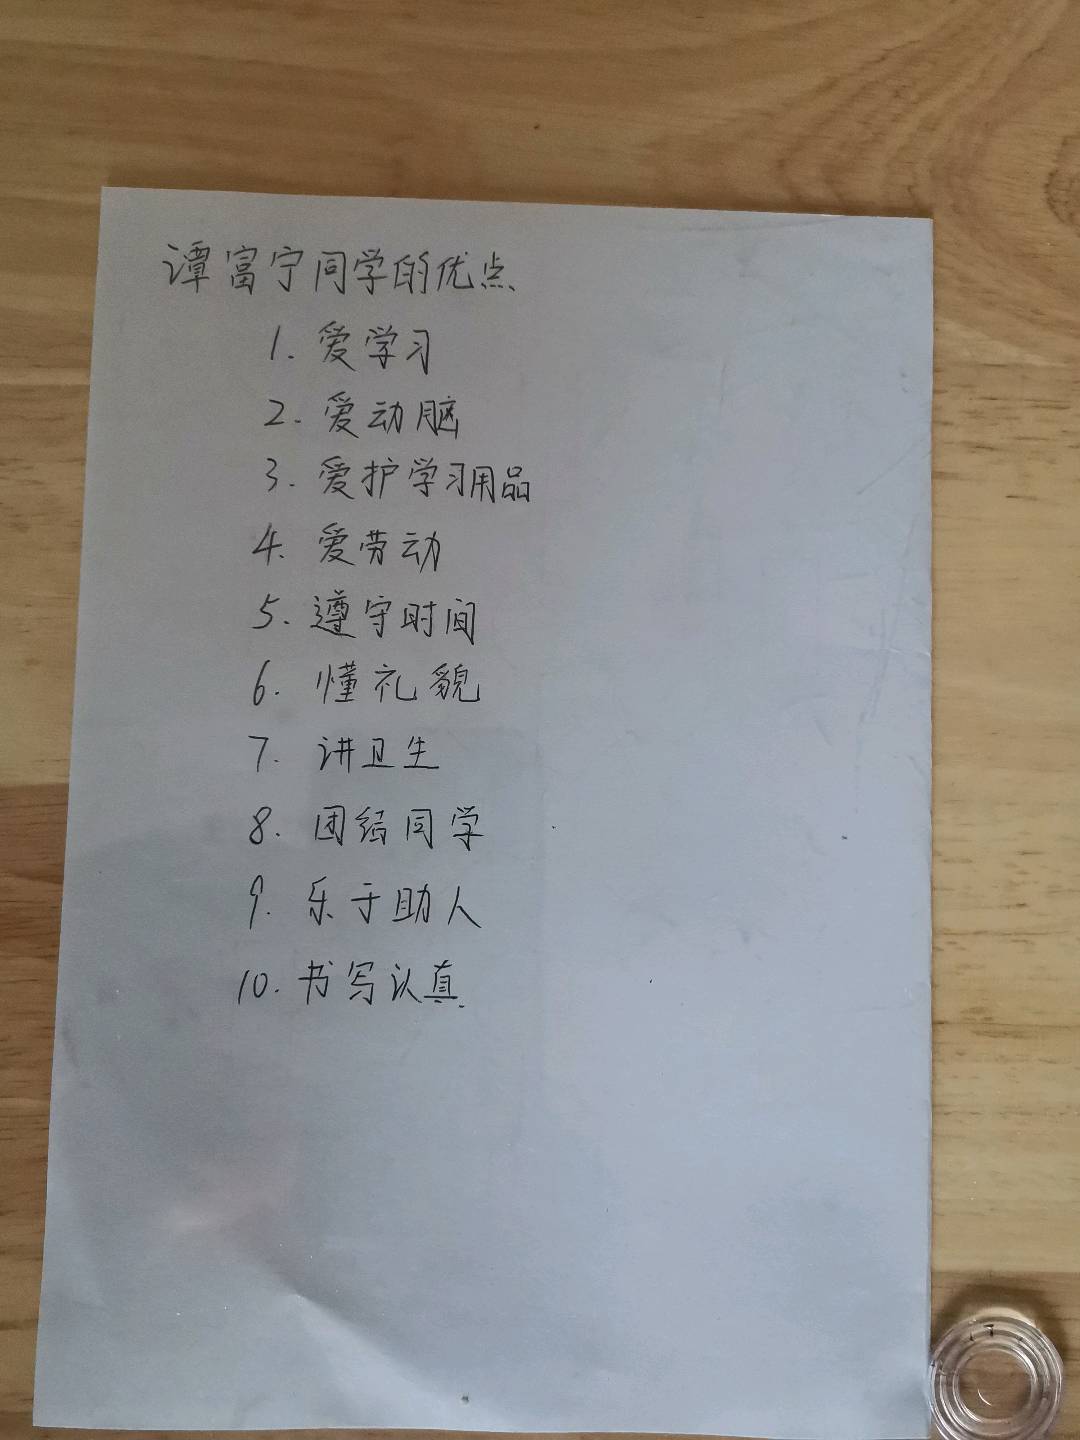 谭富宁同学的优点
1. 爱学习
2. 爱动脑
3. 爱护学习用品
4. 爱劳动
5. 遵守时间
6. 懂礼貌
7. 讲卫生
8. 团结同学
9. 乐于助人
10. 书写认真